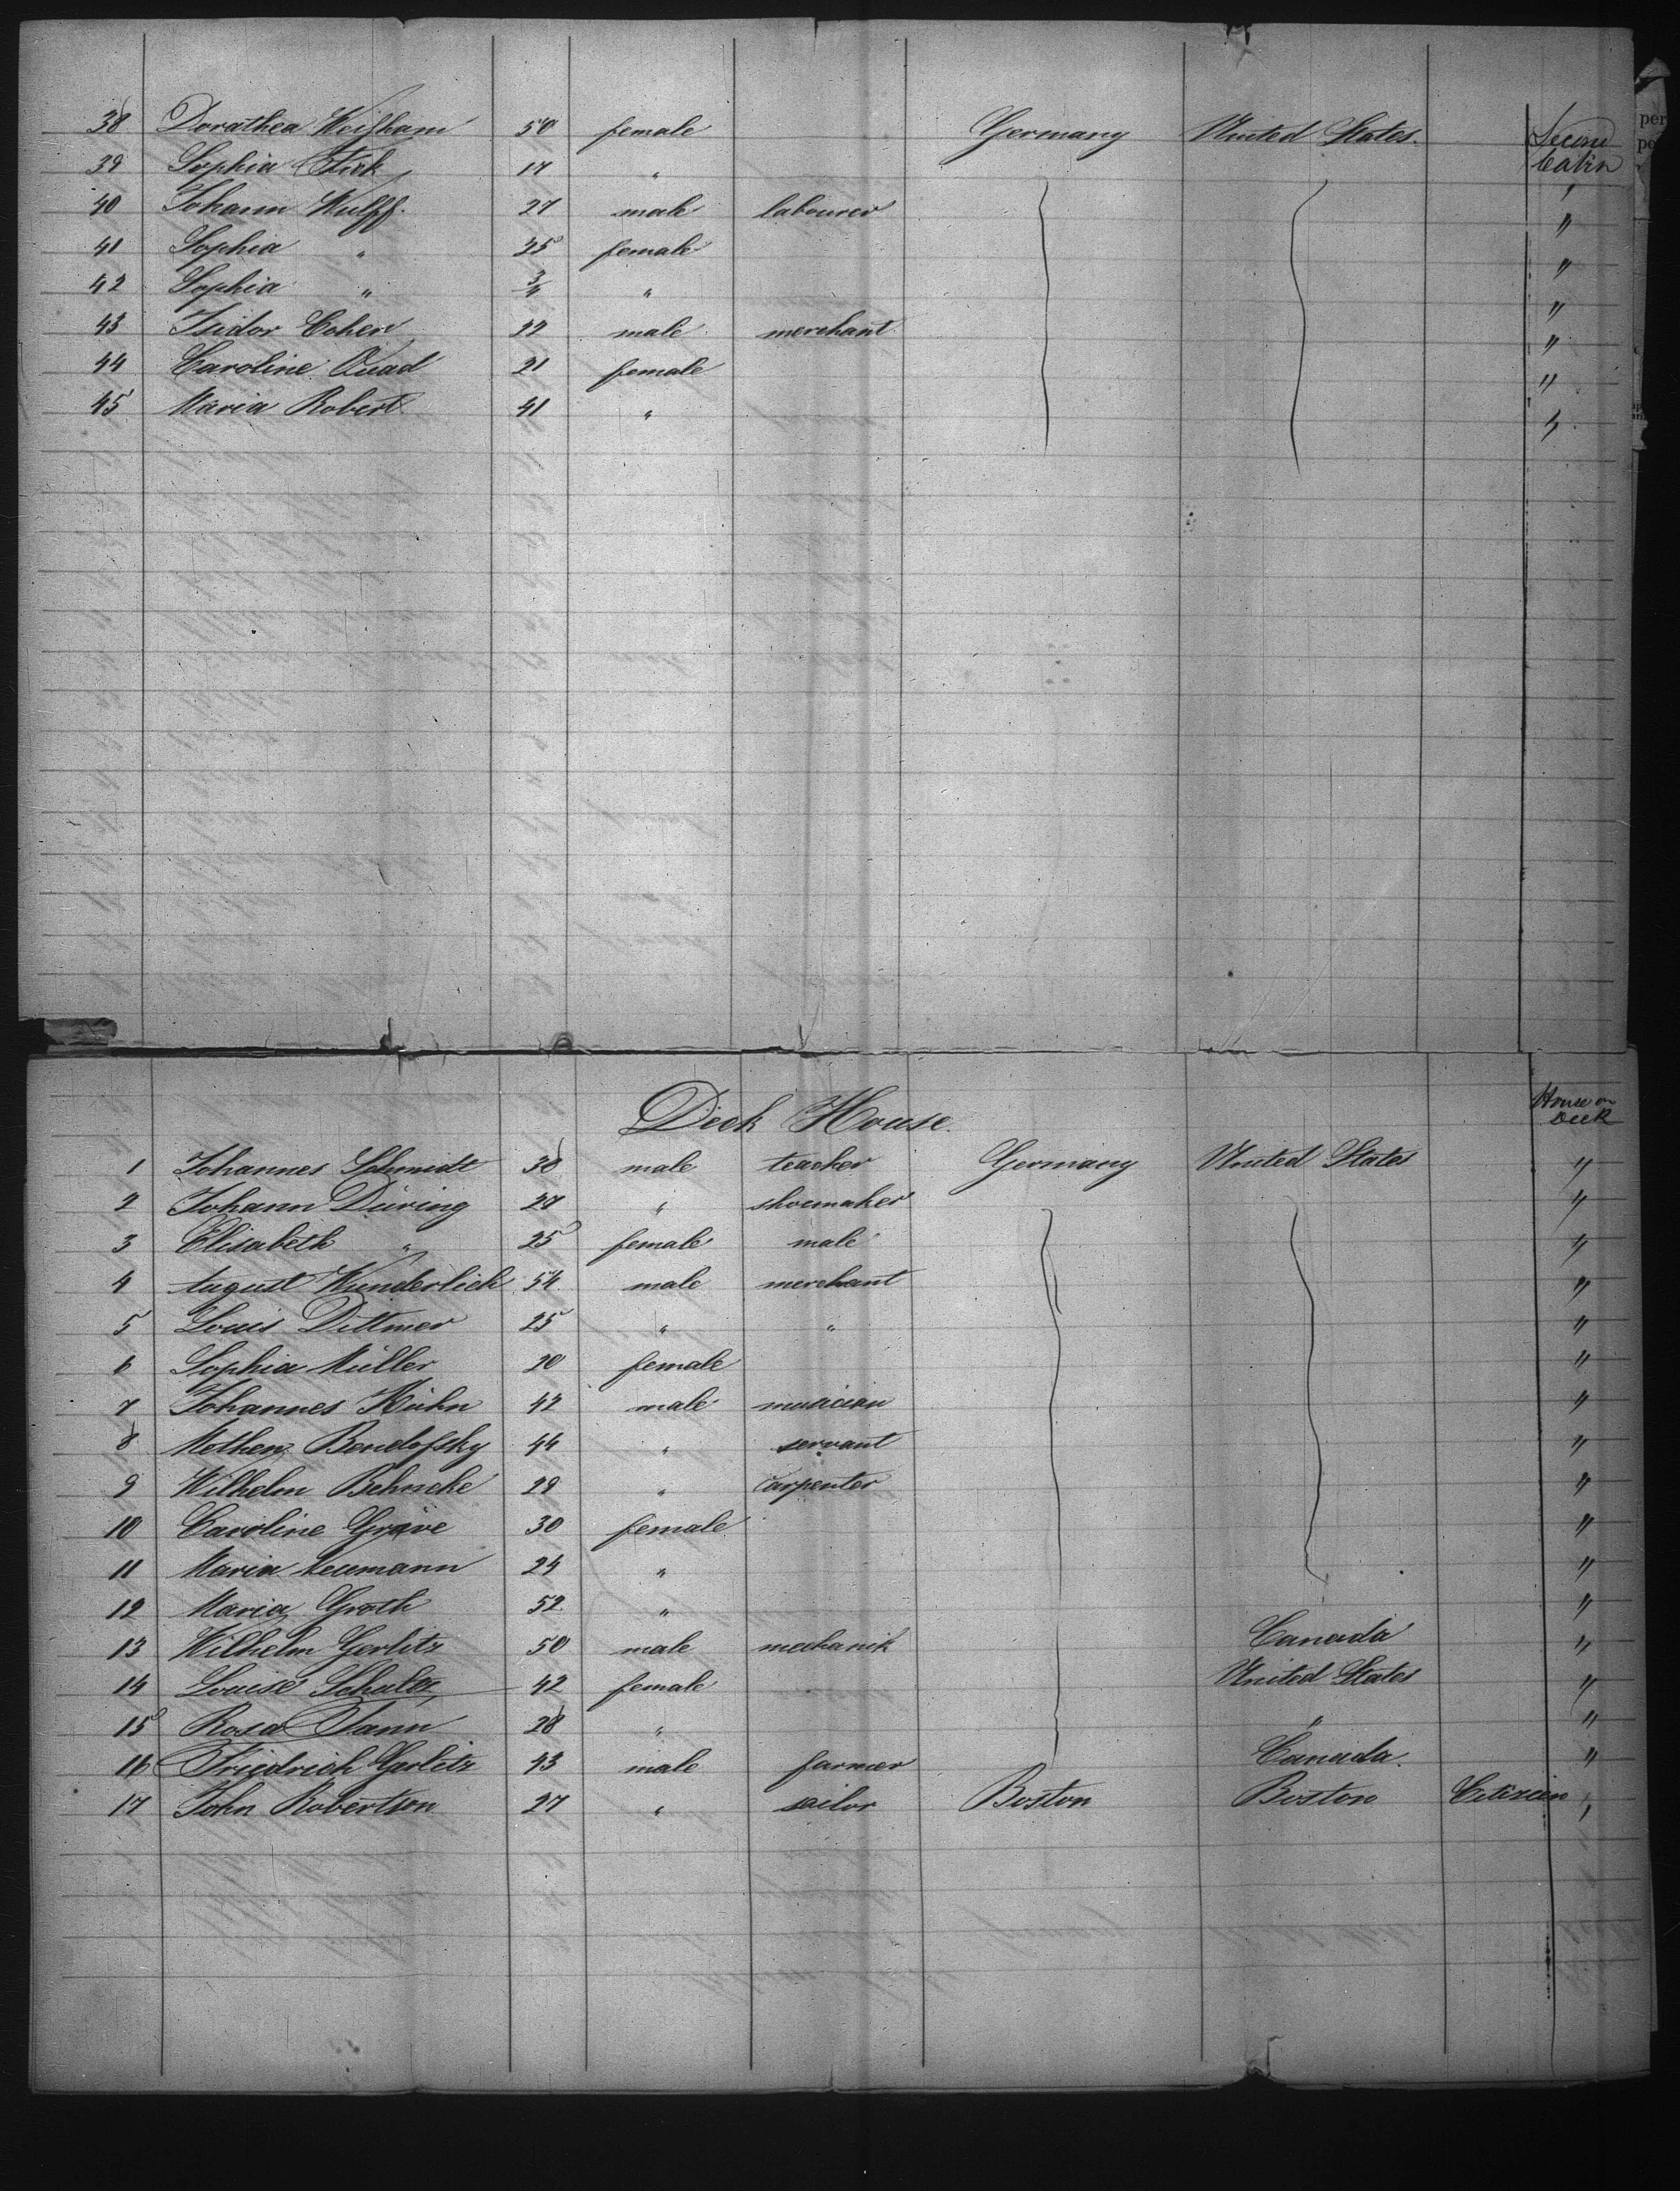 38 Dorathea Weifsham 50 female Germany United States. Second Cabin
39 Sophia 17 " "
40 Johann Wulff. 27 male labourer "
41 Sophia " 25 female "
42 Sophia " 3/4 " "
43 Isidor Cohen 22 male merchant. "
44 Caroline Quad 21 female "
45 Maria Robert 41 " "
Deck House. House on Deck
1 Johannes Schmidt 38 male teacher Germany United States "
2 Johann Düring 27 " shoemaker "
3 Elisabeth " 25 female male "
4 August Wunderlich 54 male merchant "
5 Louis Dittmer 25 " " "
6 Sophia Müller 20 female "
7 Johannes Kühn 42 male musician "
8 Bendofsky 44 " servant "
9 Wilhelm Behncke 29 " carpenter "
10 Caroline Gräve 30 female "
11 Maria Neumann 24 " "
12 Maria Groth 52 " "
13 Wilhelm Gerlitz 50 male mechanik Canada "
14 Louise Schulz 42 female United States "
15 Rosa Tann 28 " " "
16 Friedrich Gerlitz 43 male farmer Canada. "
17 John Robertson 27 " sailor Boston Boston Citizien "
per
po